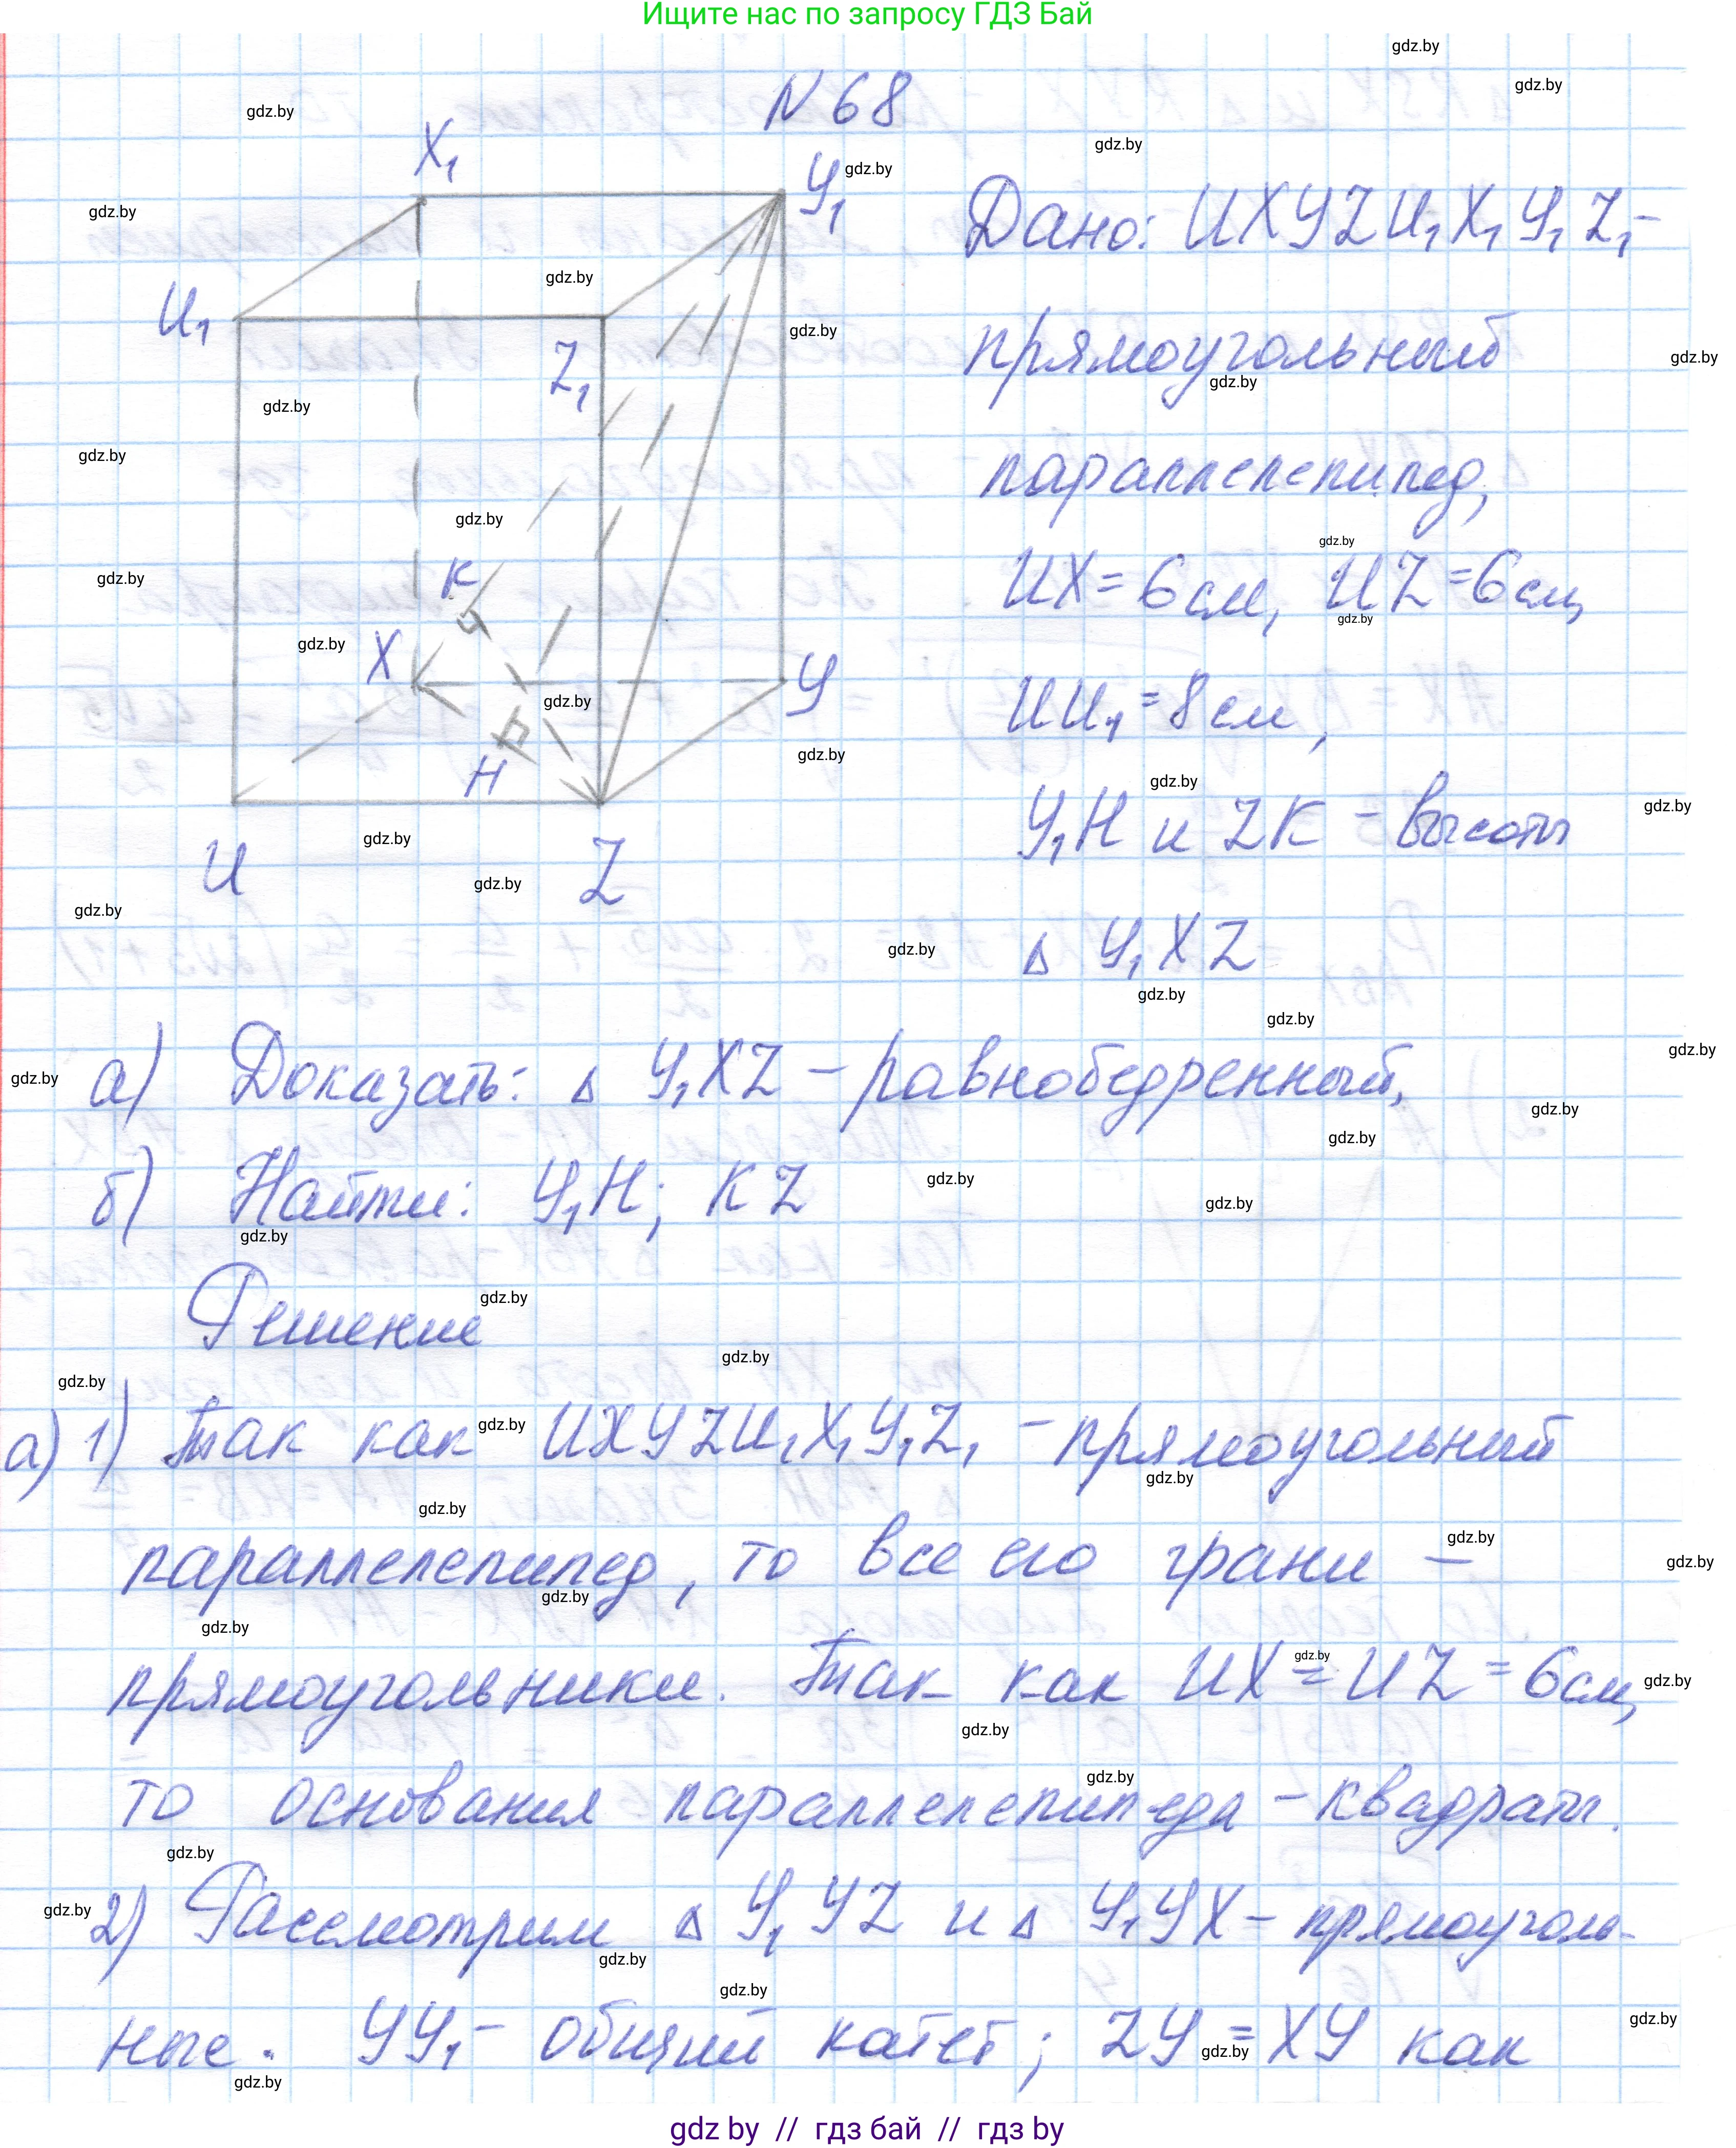 Ищите нас по запросу ГДЗ Бай
N 68
X₁
У₁
И₁
Z₁
К
X
У
Н
И
Z
Дано: ИХУZИ₁Х₁У₁Z₁ –
прямоугольный
параллелепипед,
ИХ = 6 см, ИZ = 6 см,
ИИ₁ = 8 см,
У₁Н и ZК – высоты
Δ У₁ХZ
а) Доказать: Δ У₁ХZ – равнобедренный,
б) Найти: У₁Н; КZ
Решение
а) 1) Так как ИХУZИ₁Х₁У₁Z₁ – прямоугольный
параллелепипед, то все его грани –
прямоугольники. Так как ИХ = ИZ = 6 см,
то основания параллелепипеда – квадраты.
2) Рассмотрим Δ У₁УZ и Δ У₁УХ – прямоуголь-
ные. УУ₁ – общий катет; ZУ = ХУ как
gdz by // гдз бай // гдз by